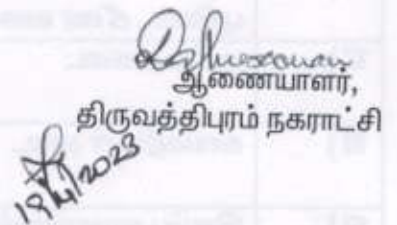 ஆணையாளர்,
திருவத்திபுரம் நகராட்சி
19/4/2023